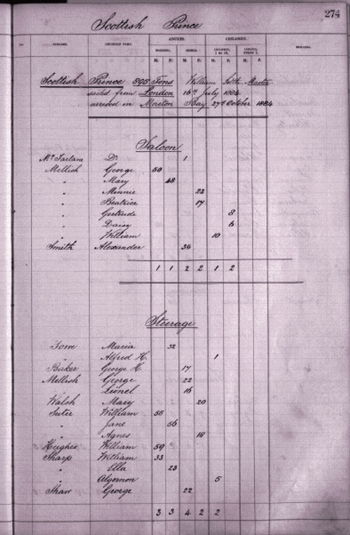 274
Scottish Prince
ADULTS. CHILDREN.
MARRIED. SINGLE. CHILDREN, 1 to 12. INFANTS, UNDER 1.
SURNAME. CHRISTIAN NAME. M. F. M. F. M. F. M. F. REMARKS.
Scottish Prince 895 Tons William Master
sailed from London 16th July 1884
arrived in Moreton Bay 27th October 1884
Saloon
McFarlane Dr 1
Mellish George 50
" Mary 48
" Minnie 22
" Beatrice 17
" Gertrude 8
" Daisy 6
" William 10
Smith Alexander 36
1 1 2 2 1 2
Steerage
Tom Maria 32
" Alfred H. 1
Baker George C. 17
Mellish George 22
" Lionel 16
Walsh Mary 20
Suter William 55
" Jane 56
" Agnes 18
Hughes William 59
Sharp William 33
" Ella 23
" Algernon 5
Shaw George 22
3 3 4 2 2